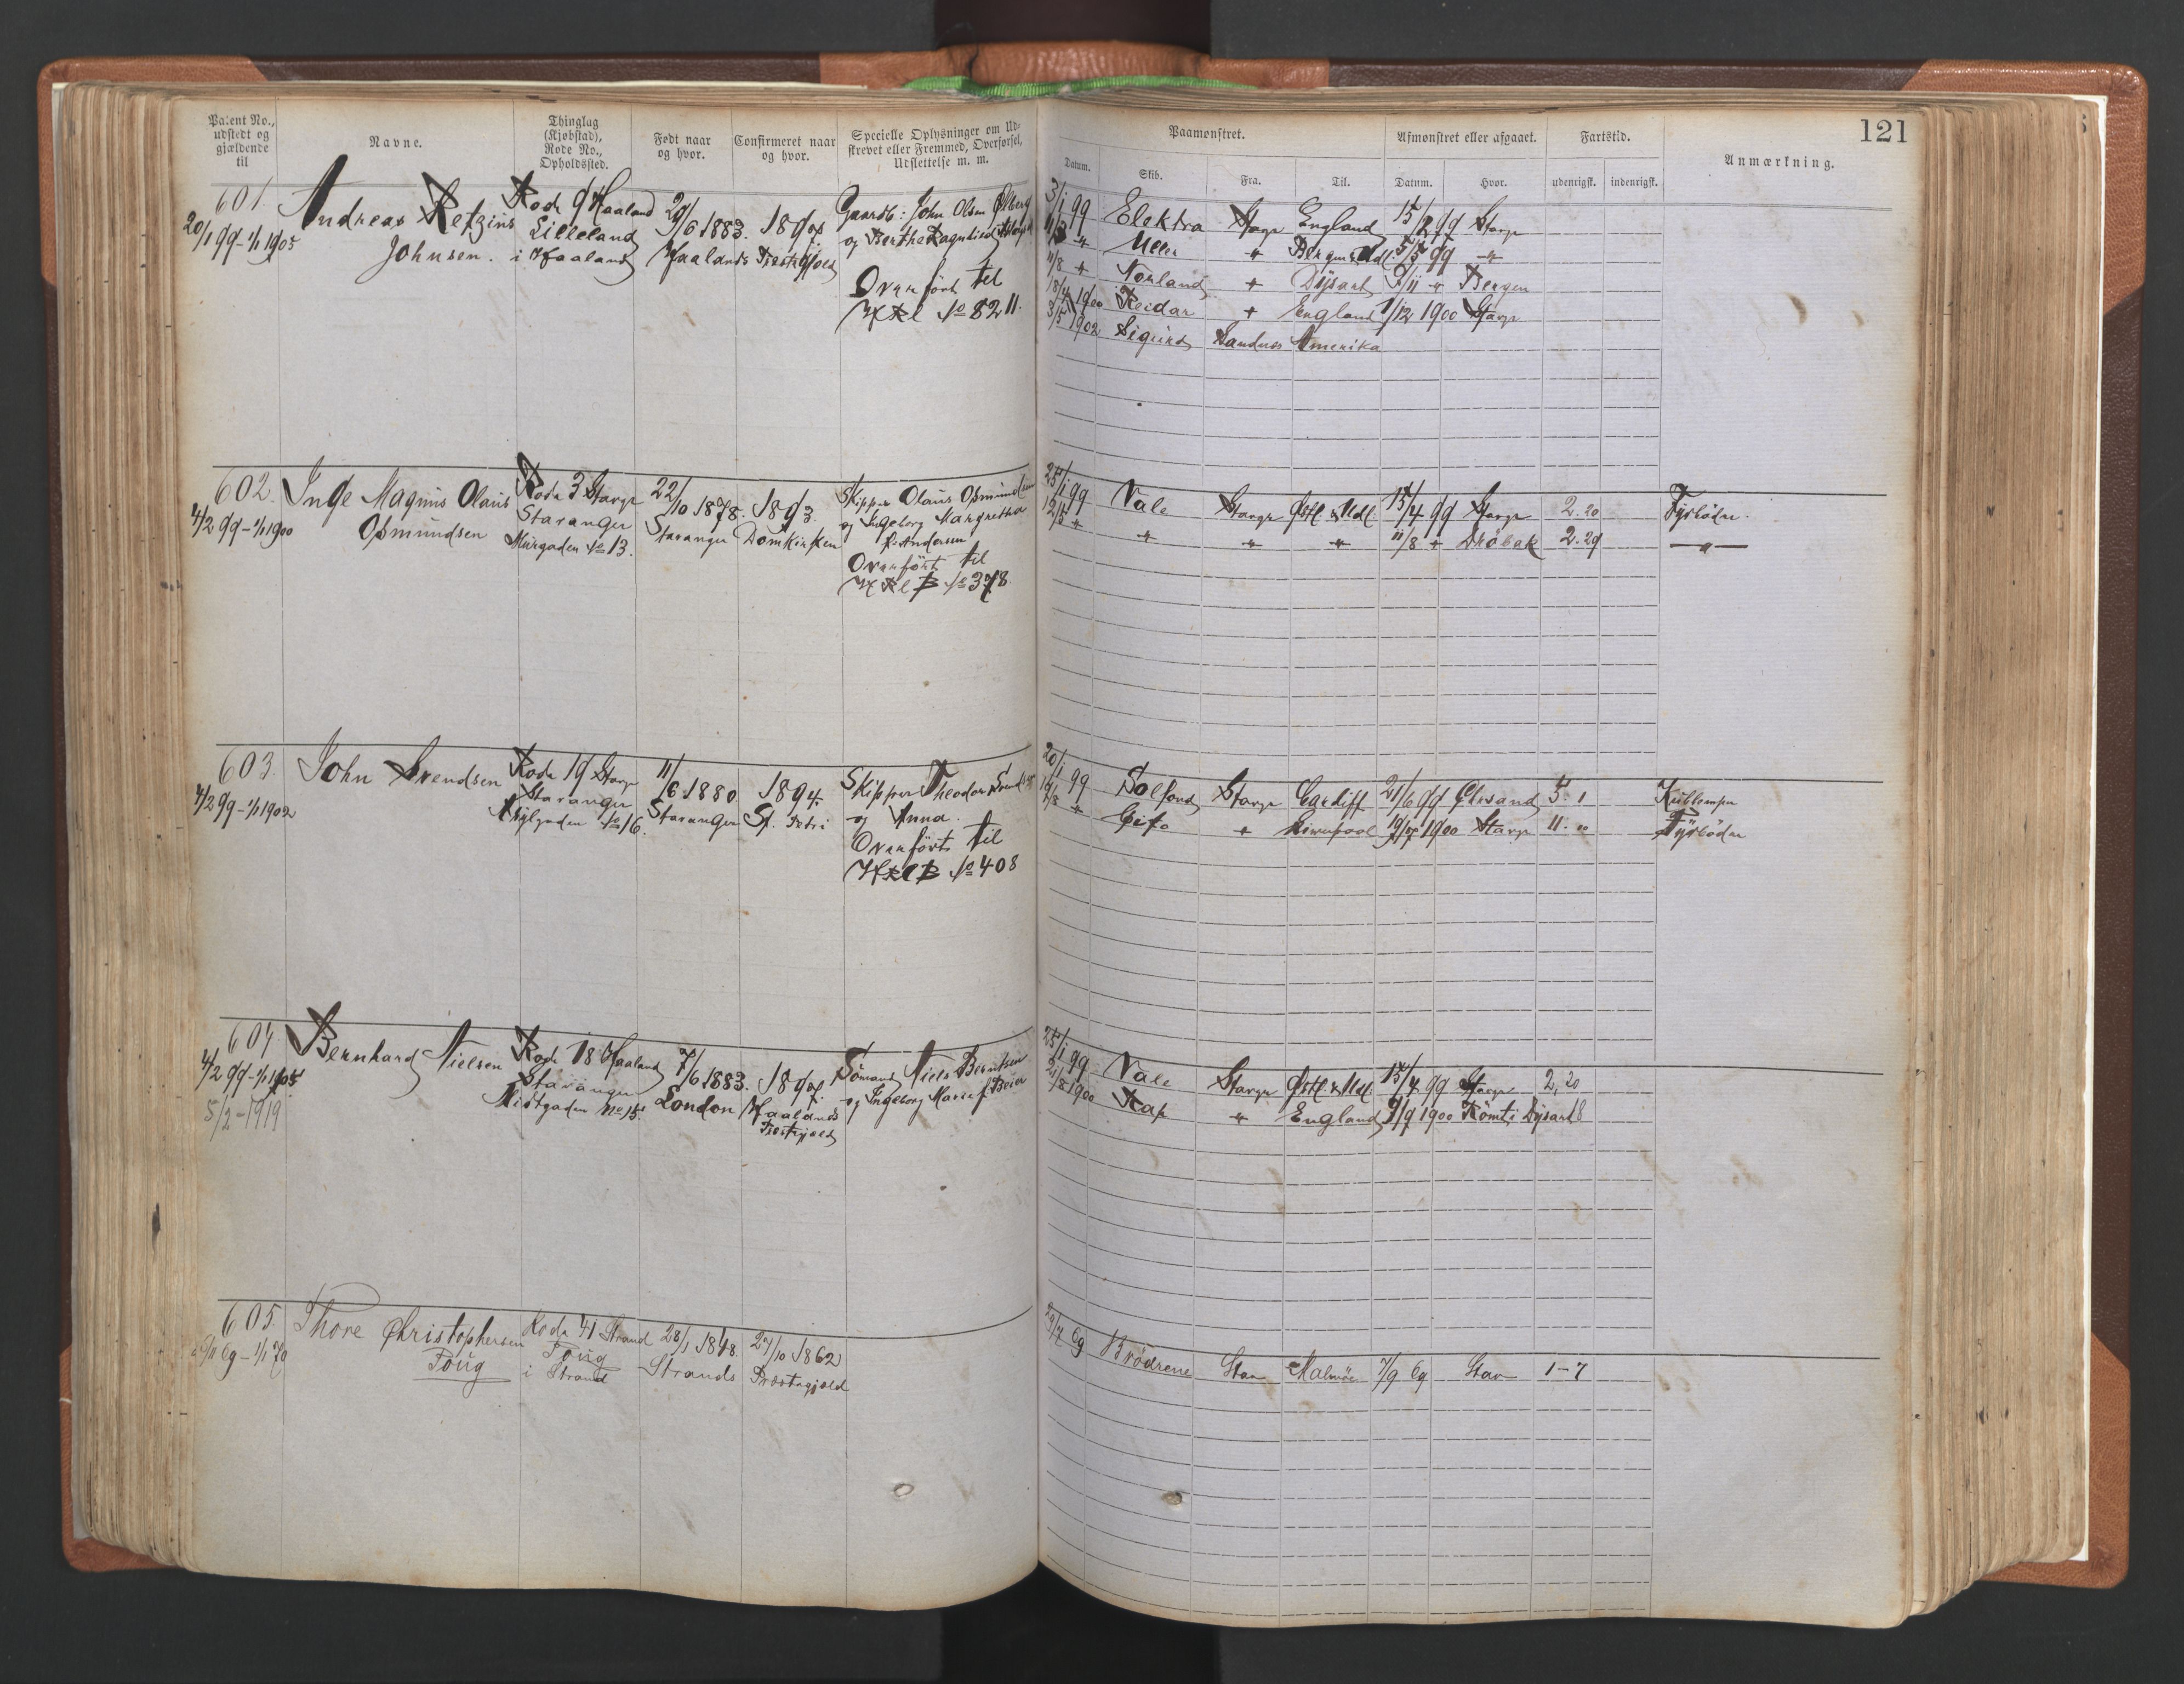 Patent No., udstedt og gjældende til
Navne.
Thinglag (Kjøbstad), Rode No., Opholdssted.
Født naar og hvor.
Confirmeret naar og hvor.
Specielle Oplysninger om Udstrevet eller Fremmed, Overførsel, Udslettelse m. m.
601.
20/1 99 - 1/1 1905
Andreas Retzius
Johnsen.
Rode 9 Haaland
Lilleland
i Haaland
29/6 1883.
Haalands
1897.
Præstegjæld
Gaardb: John Olsen
og Berthe Ragnhild
Overført til
HRl № 8211.
602.
4/2 99 - 1/1 1900
Inge Magnus Olaus
Osmundsen
Rode 3 Stavgr
Stavanger
Murgaden № 13.
22/10 1878.
Stavanger
1893.
Domkirken
Skipper Olaus Osmundsen
og Ingeborg Margrethe
f. Andersen
Overført til
HRl B № 378.
603.
4/2 99 - 1/1 1902
John Svendsen
Rode 19 Stavgr
Stavanger
№ 16.
11/6 1880
Stavanger
1894.
St. Petri
Skipper Theodor Svendsen
og Anna.
Overført til
HRl B № 408
604.
4/2 99 - 1/1 1905
5/2 - 1919
Bernhard Nielsen
Rode 18 Haaland
Stavanger
No 15.
7/6 1883.
London
1897.
Haalands
Præstegjæld
Sömand Niels Berntsen
og Ingeborg Marie f. Beier
605.
- 1/1 70
Thore Christophersen
Poug
Rode 41 Strand
Poug
i Strand
28/1 1848.
Strands
27/10 1862
Præstegjæld
121
Paamønstret.
Afmønstret eller afgaaet.
Fartstid.
Anmærkning.
Datum.
Skib.
Fra.
Til.
Datum.
Hvor.
udenrigsk.
indenrigsk.
3/1 99 Elektra Stavgr England 15/2 99 Stavgr
Uller " Bergen & Udl. 5/5 99 "
11/8 " Norland " Dysart 9/11 " Bergen
18/4 1900 Reidar " England 1/12 1900 Stavgr
3/5 1902 Sigurd Sandnes Amerika
25/1 99 Vale Stavgr Østl. & Udl. 15/4 99 Stavgr 2.20 Fyrböder.
12/5 " " " " 11/8 " Dröbak 2.29 — " —
20/1 99 Solfond Stavgr Cardiff 21/6 99 Chrsand 5. 1 Kullemper
" Gefo " Liverpool 1900 Stavgr 11. " Fyrböder
25/1 99 Vale Stavgr Østl. & Udl. 15/4 99 Stavgr 2,20
21/8 1900 Kap " England 9/9 1900 Römt i Dysart
29/7 69 Brödrene Stav Malmöe 7/9 69 Stav 1-7